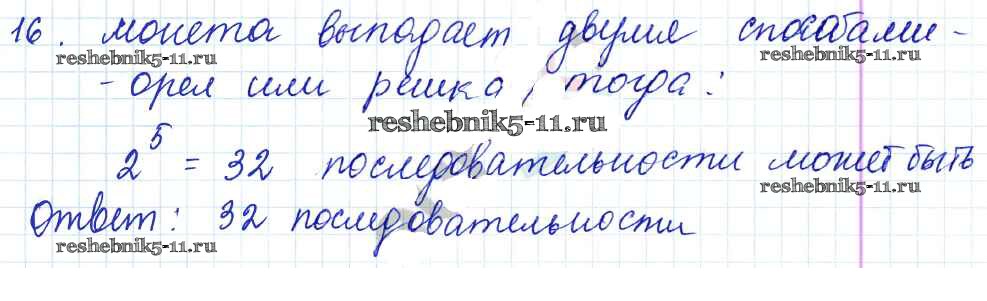 16. монета выпадает двумя способами -
- орел или решка, тогда:
2^5 = 32 последовательности может быть
Ответ: 32 последовательности
reshebnik5-11.ru
reshebnik5-11.ru
reshebnik5-11.ru
reshebnik5-11.ru
reshebnik5-11.ru